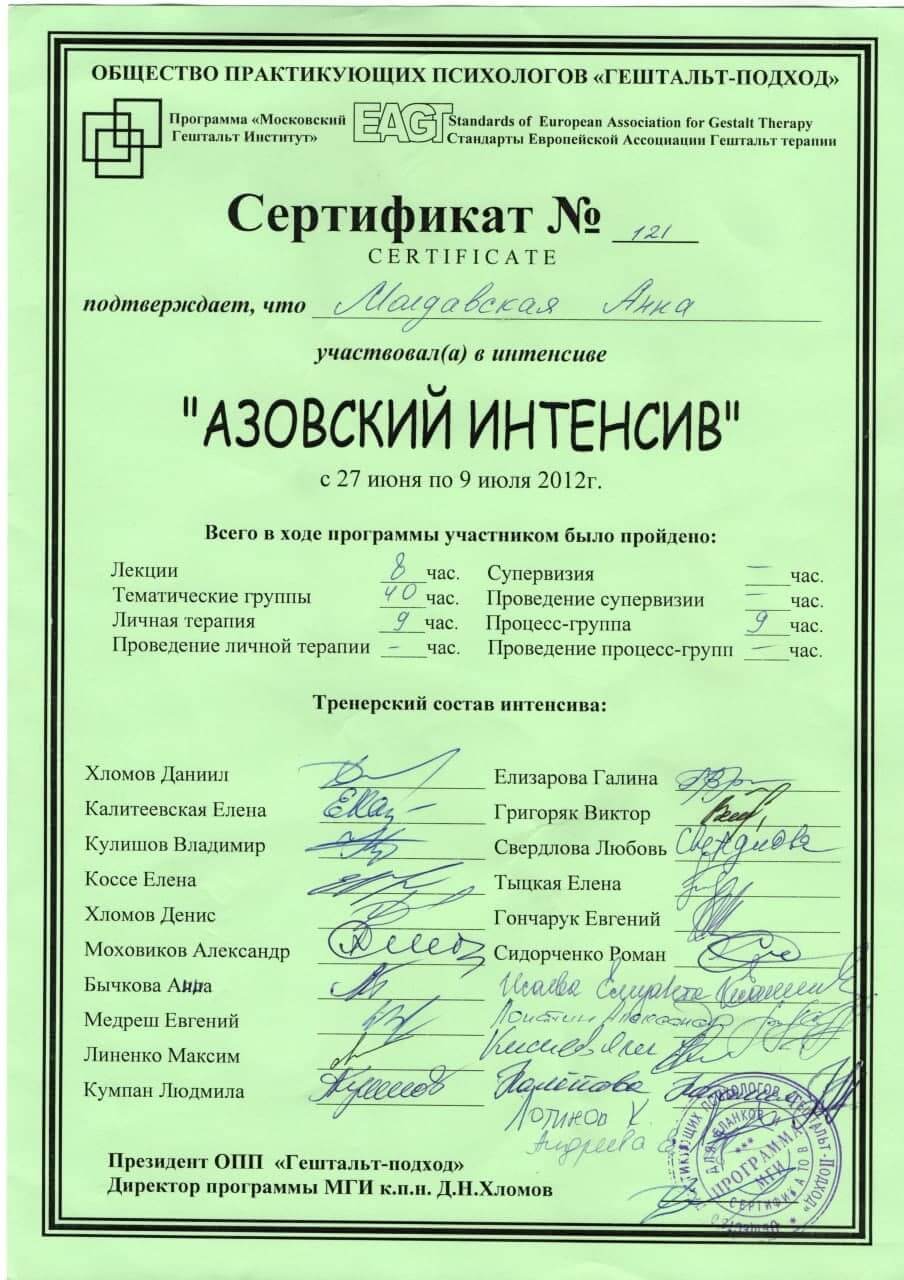 ОБЩЕСТВО ПРАКТИКУЮЩИХ ПСИХОЛОГОВ «ГЕШТАЛЬТ-ПОДХОД»
Программа «Московский Гештальт Институт»
EAGT
Standards of European Association for Gestalt Therapy
Стандарты Европейской Ассоциации Гештальт терапии
Сертификат № 121
CERTIFICATE
подтверждает, что Молдавская Анна
участвовал(а) в интенсиве
"АЗОВСКИЙ ИНТЕНСИВ"
с 27 июня по 9 июля 2012г.
Всего в ходе программы участником было пройдено:
Лекции 8 час. Супервизия — час.
Тематические группы 40 час. Проведение супервизии — час.
Личная терапия 9 час. Процесс-группа 9 час.
Проведение личной терапии - час. Проведение процесс-групп — час.
Тренерский состав интенсива:
Хломов Даниил Елизарова Галина
Калитеевская Елена Григоряк Виктор
Кулишов Владимир Свердлова Любовь Свердлова
Коссе Елена Тыцкая Елена
Хломов Денис Гончарук Евгений
Моховиков Александр Сидорченко Роман
Бычкова Анна
Медреш Евгений
Линенко Максим
Кумпан Людмила
Андреева
Президент ОПП «Гештальт-подход»
Директор программы МГИ к.п.н. Д.Н.Хломов
ДЛЯ БЛАНКОВ И СЕРТИФИКАТОВ
ПРОГРАММА МГИ